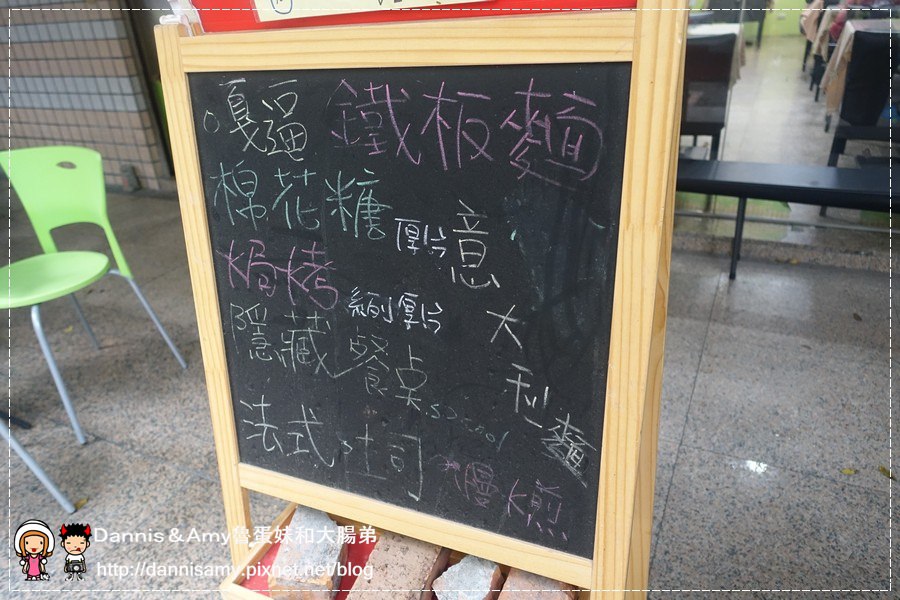 嘎逼 鐵板麵
棉花糖 厚片 意
焗烤 大
隱藏 餐桌 利
法式 吐司 麵
慢煎
Dannis & Amy魯蛋妹和大腸弟
http://dannisamy.pixnet.net/blog